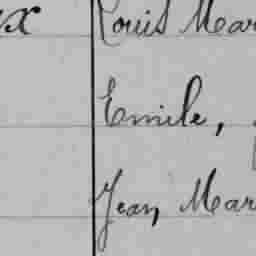 Louis Mar
Emile,
Jean, Mar